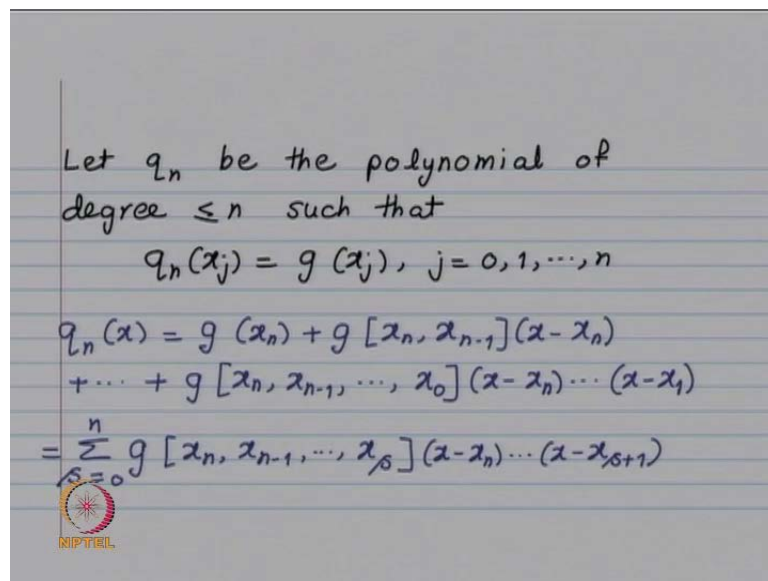 Let qₙ be the polynomial of
degree ≤ n such that
qₙ(xⱼ) = g (xⱼ), j = 0, 1, ⋯, n
qₙ(x) = g (xₙ) + g [xₙ, xₙ₋₁](x − xₙ)
+ ⋯ + g [xₙ, xₙ₋₁, ⋯, x₀](x − xₙ) ⋯ (x − x₁)
= Σ_{s=0}^{n} g [xₙ, xₙ₋₁, ⋯, x_s](x − xₙ) ⋯ (x − x_{s+1})
NPTEL